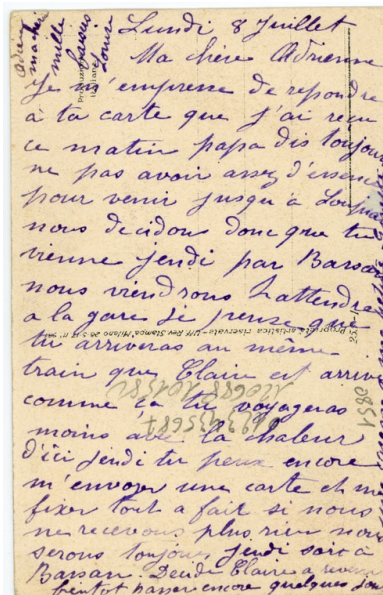 Lundi 8 Juillet
Ma chère Adrienne
Je m'empresse de repondre
à ta carte que j'ai reçu
ce matin papa dis toujours
ne pas avoir assez d'essence
pour venir jusqu'à
nous decidons donc que tu
vienne jendi par Barsan
nous viendrons t'attendre
a la gare Je pense que
tu arriveras au même
train que Claire est arrivé
comme ça tu voyageras
moins avec la chaleur
d'ici jendi tu peux encore
m'envoyer une carte et me
fixer tout a fait si nous
ne recevons plus rien nous
serons toujours jendi soir à
Barsan. Decide Claire a revenir
bientot passer encore quelques jours
mille
baisers
Louise
Proprietà artistica riservata - Uff. Rev. Stampa Milano
0851